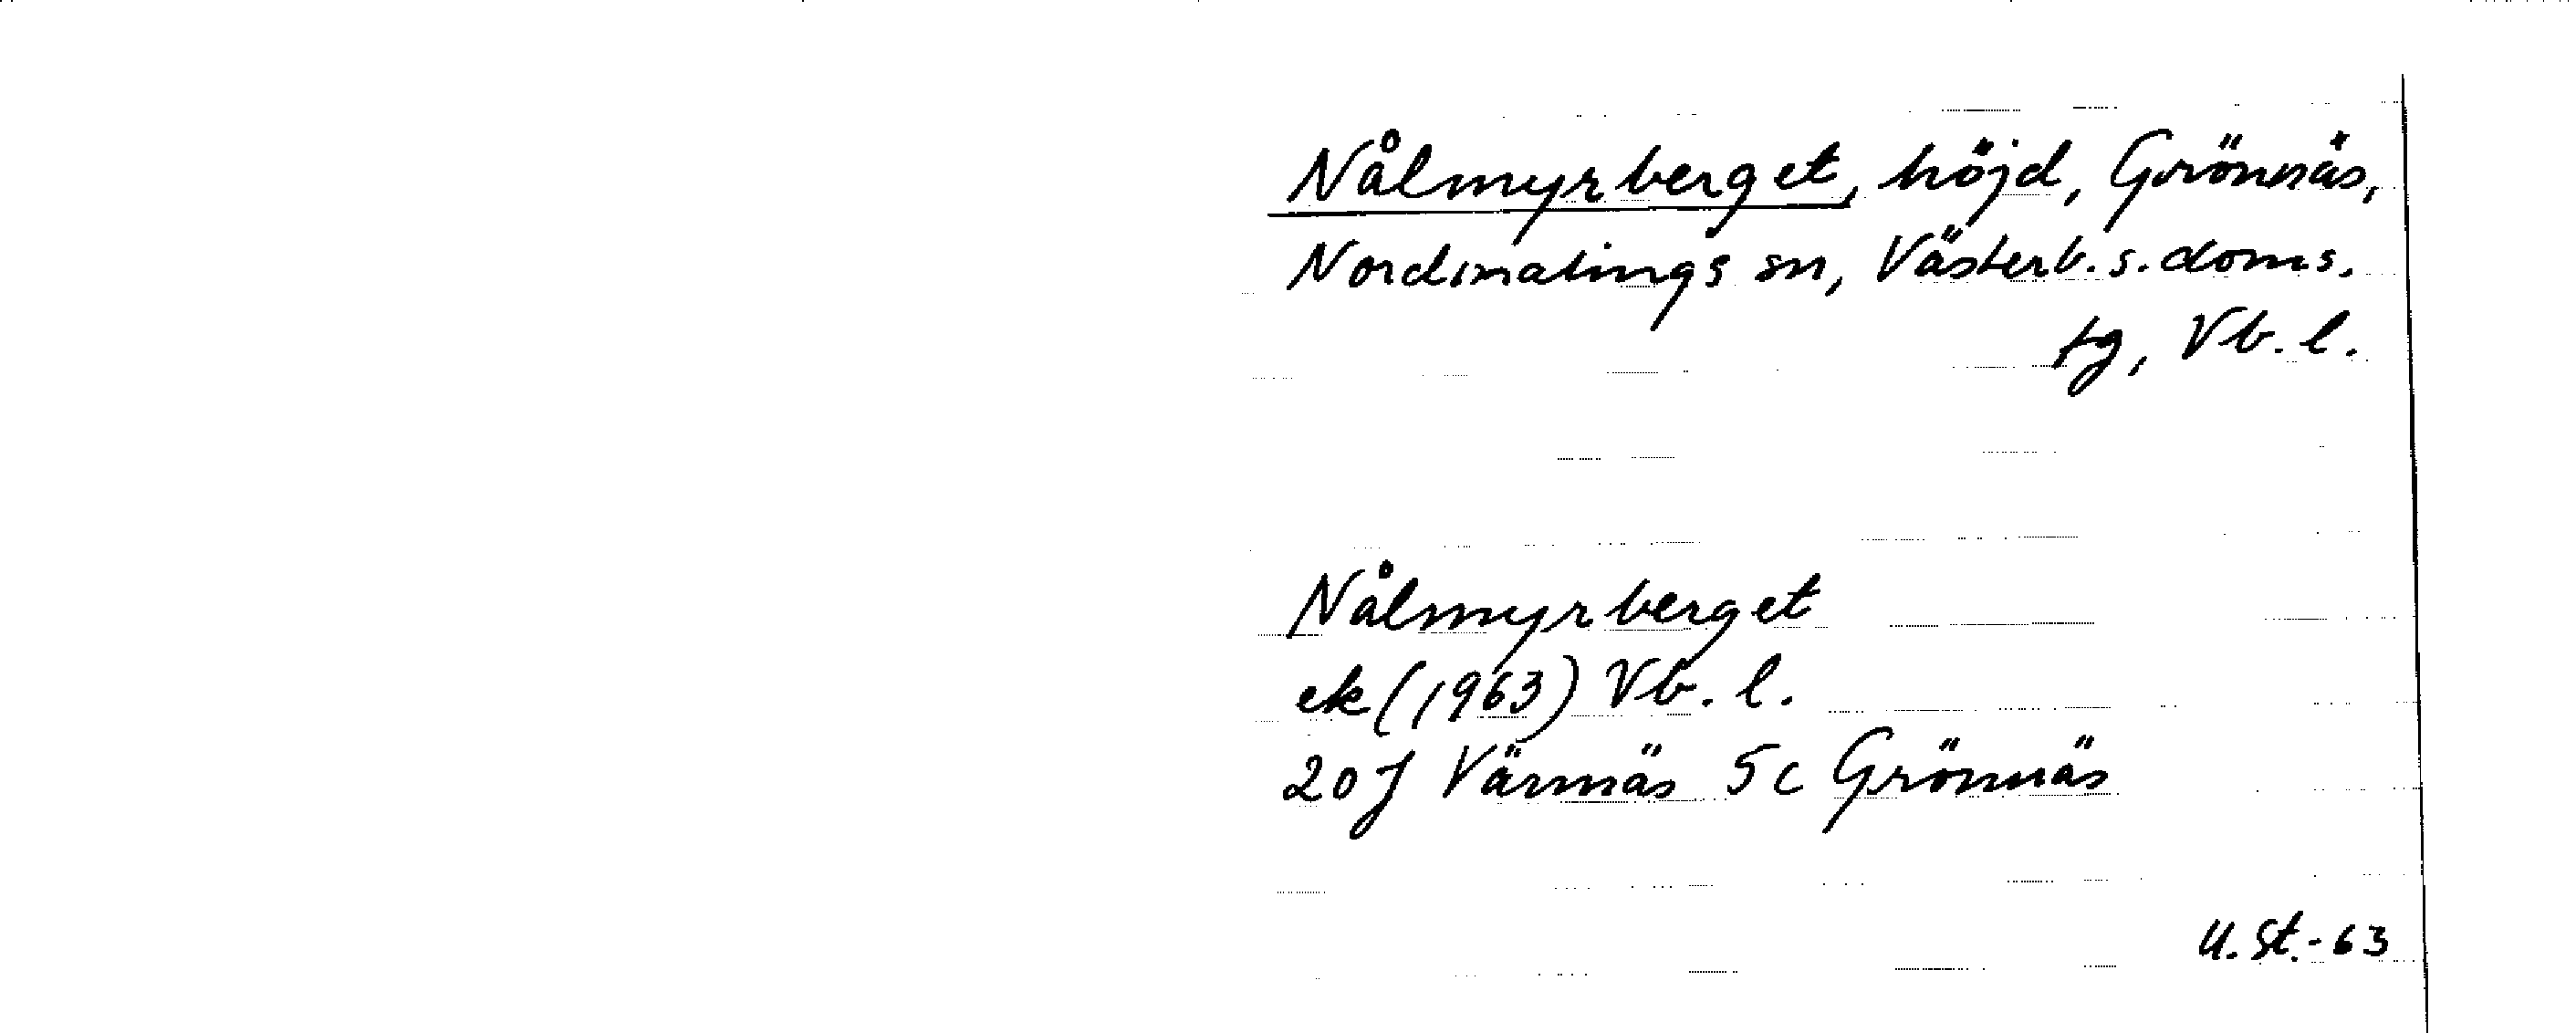 Nålmyrberget, höjd, Grönnäs,
Nordmalings sn, Västerb. s. doms.
tg, Vb. l.
Nålmyrberget
ek (1963) Vb. l.
20 J Värnäs 5c Grönnäs
U. St. - 63